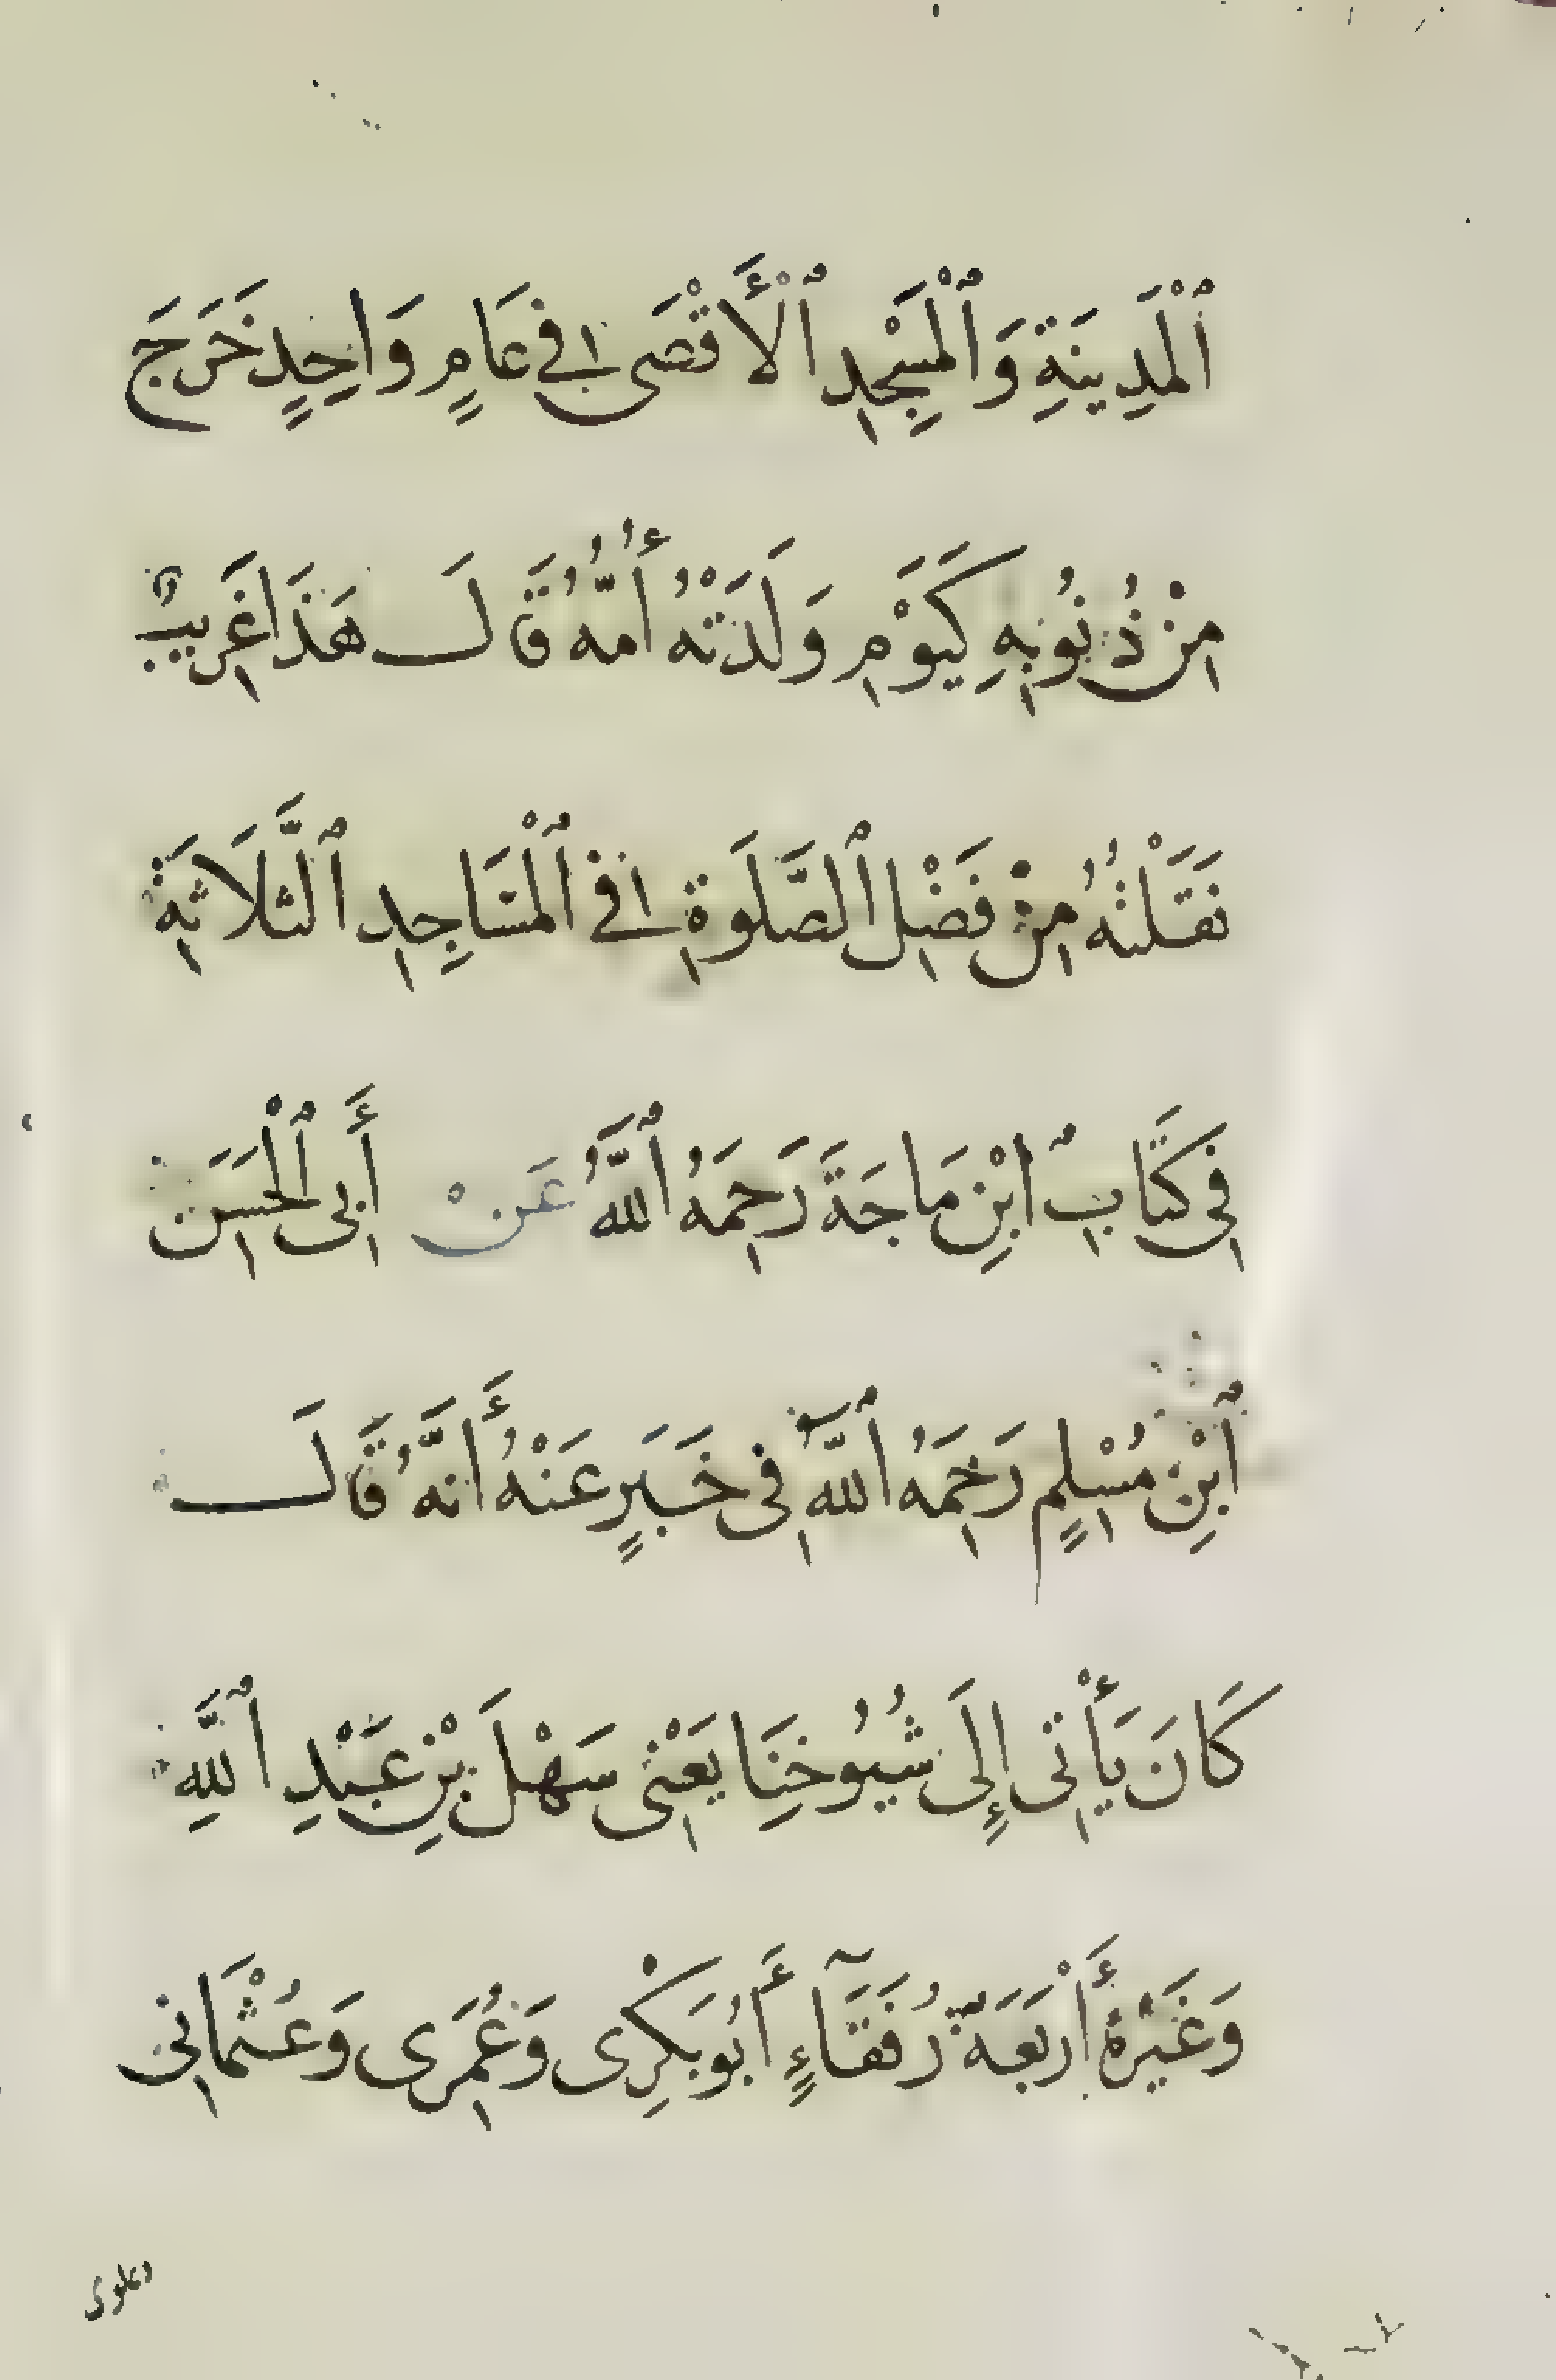 ٱلْمَدِينَةِ وَٱلْمَسْجِدِ ٱلْأَقْصَى فِي عَامٍ وَاحِدٍ خَرَجَ
مِنْ ذُنُوبِهِ كَيَوْمِ وَلَدَتْهُ أُمُّهُ قَالَ هَذَا غَرِيبٌ
نَقَلْتُهُ مِنْ فَضْلِ ٱلصَّلَوةِ فِي ٱلْمَسَاجِدِ ٱلثَّلَاثَةِ
فِي كِتَابِ ابْنِ مَاجَةَ رَحِمَهُ ٱللَّهُ عَنْ أَبِي ٱلْحَسَنِ
ٱبْنِ مُسْلِمٍ رَحِمَهُ ٱللَّهُ فِي خَبَرٍ عَنْهُ أَنَّهُ قَالَ
كَانَ يَأْتِي إِلَى شُيُوخِنَا يَعْنِي سَهْلَ بْنِ عَبْدِ ٱللَّهِ
وَغَيْرَهُ أَرْبَعَةُ رُفَقَآءٍ أَبُوبَكْرِى وَعُمَرِى وَعُثْمَانِى
وعلوى